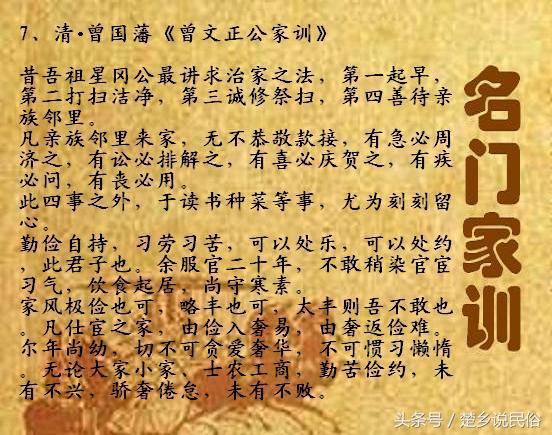 7、清·曾国藩《曾文正公家训》
昔吾祖星冈公最讲求治家之法，第一起早，
第二打扫洁净，第三诚修祭扫，第四善待亲
族邻里。
凡亲族邻里来家，无不恭敬款接，有急必周
济之，有讼必排解之，有喜必庆贺之，有疾
必问，有丧必用。
此四事之外，于读书种菜等事，尤为刻刻留
心。
勤俭自持，习劳习苦，可以处乐，可以处约
，此君子也。余服官二十年，不敢稍染官宦
习气，饮食起居，尚守寒素。
家风极俭也可，略丰也可，太丰则吾不敢也
。凡仕宦之家，由俭入奢易，由奢返俭难。
尔年尚幼，切不可贪爱奢华，不可惯习懒惰
。无论大家小家、士农工商，勤苦俭约，未
有不兴，骄奢倦怠，未有不败。
名门家训
头条号／楚乡说民俗